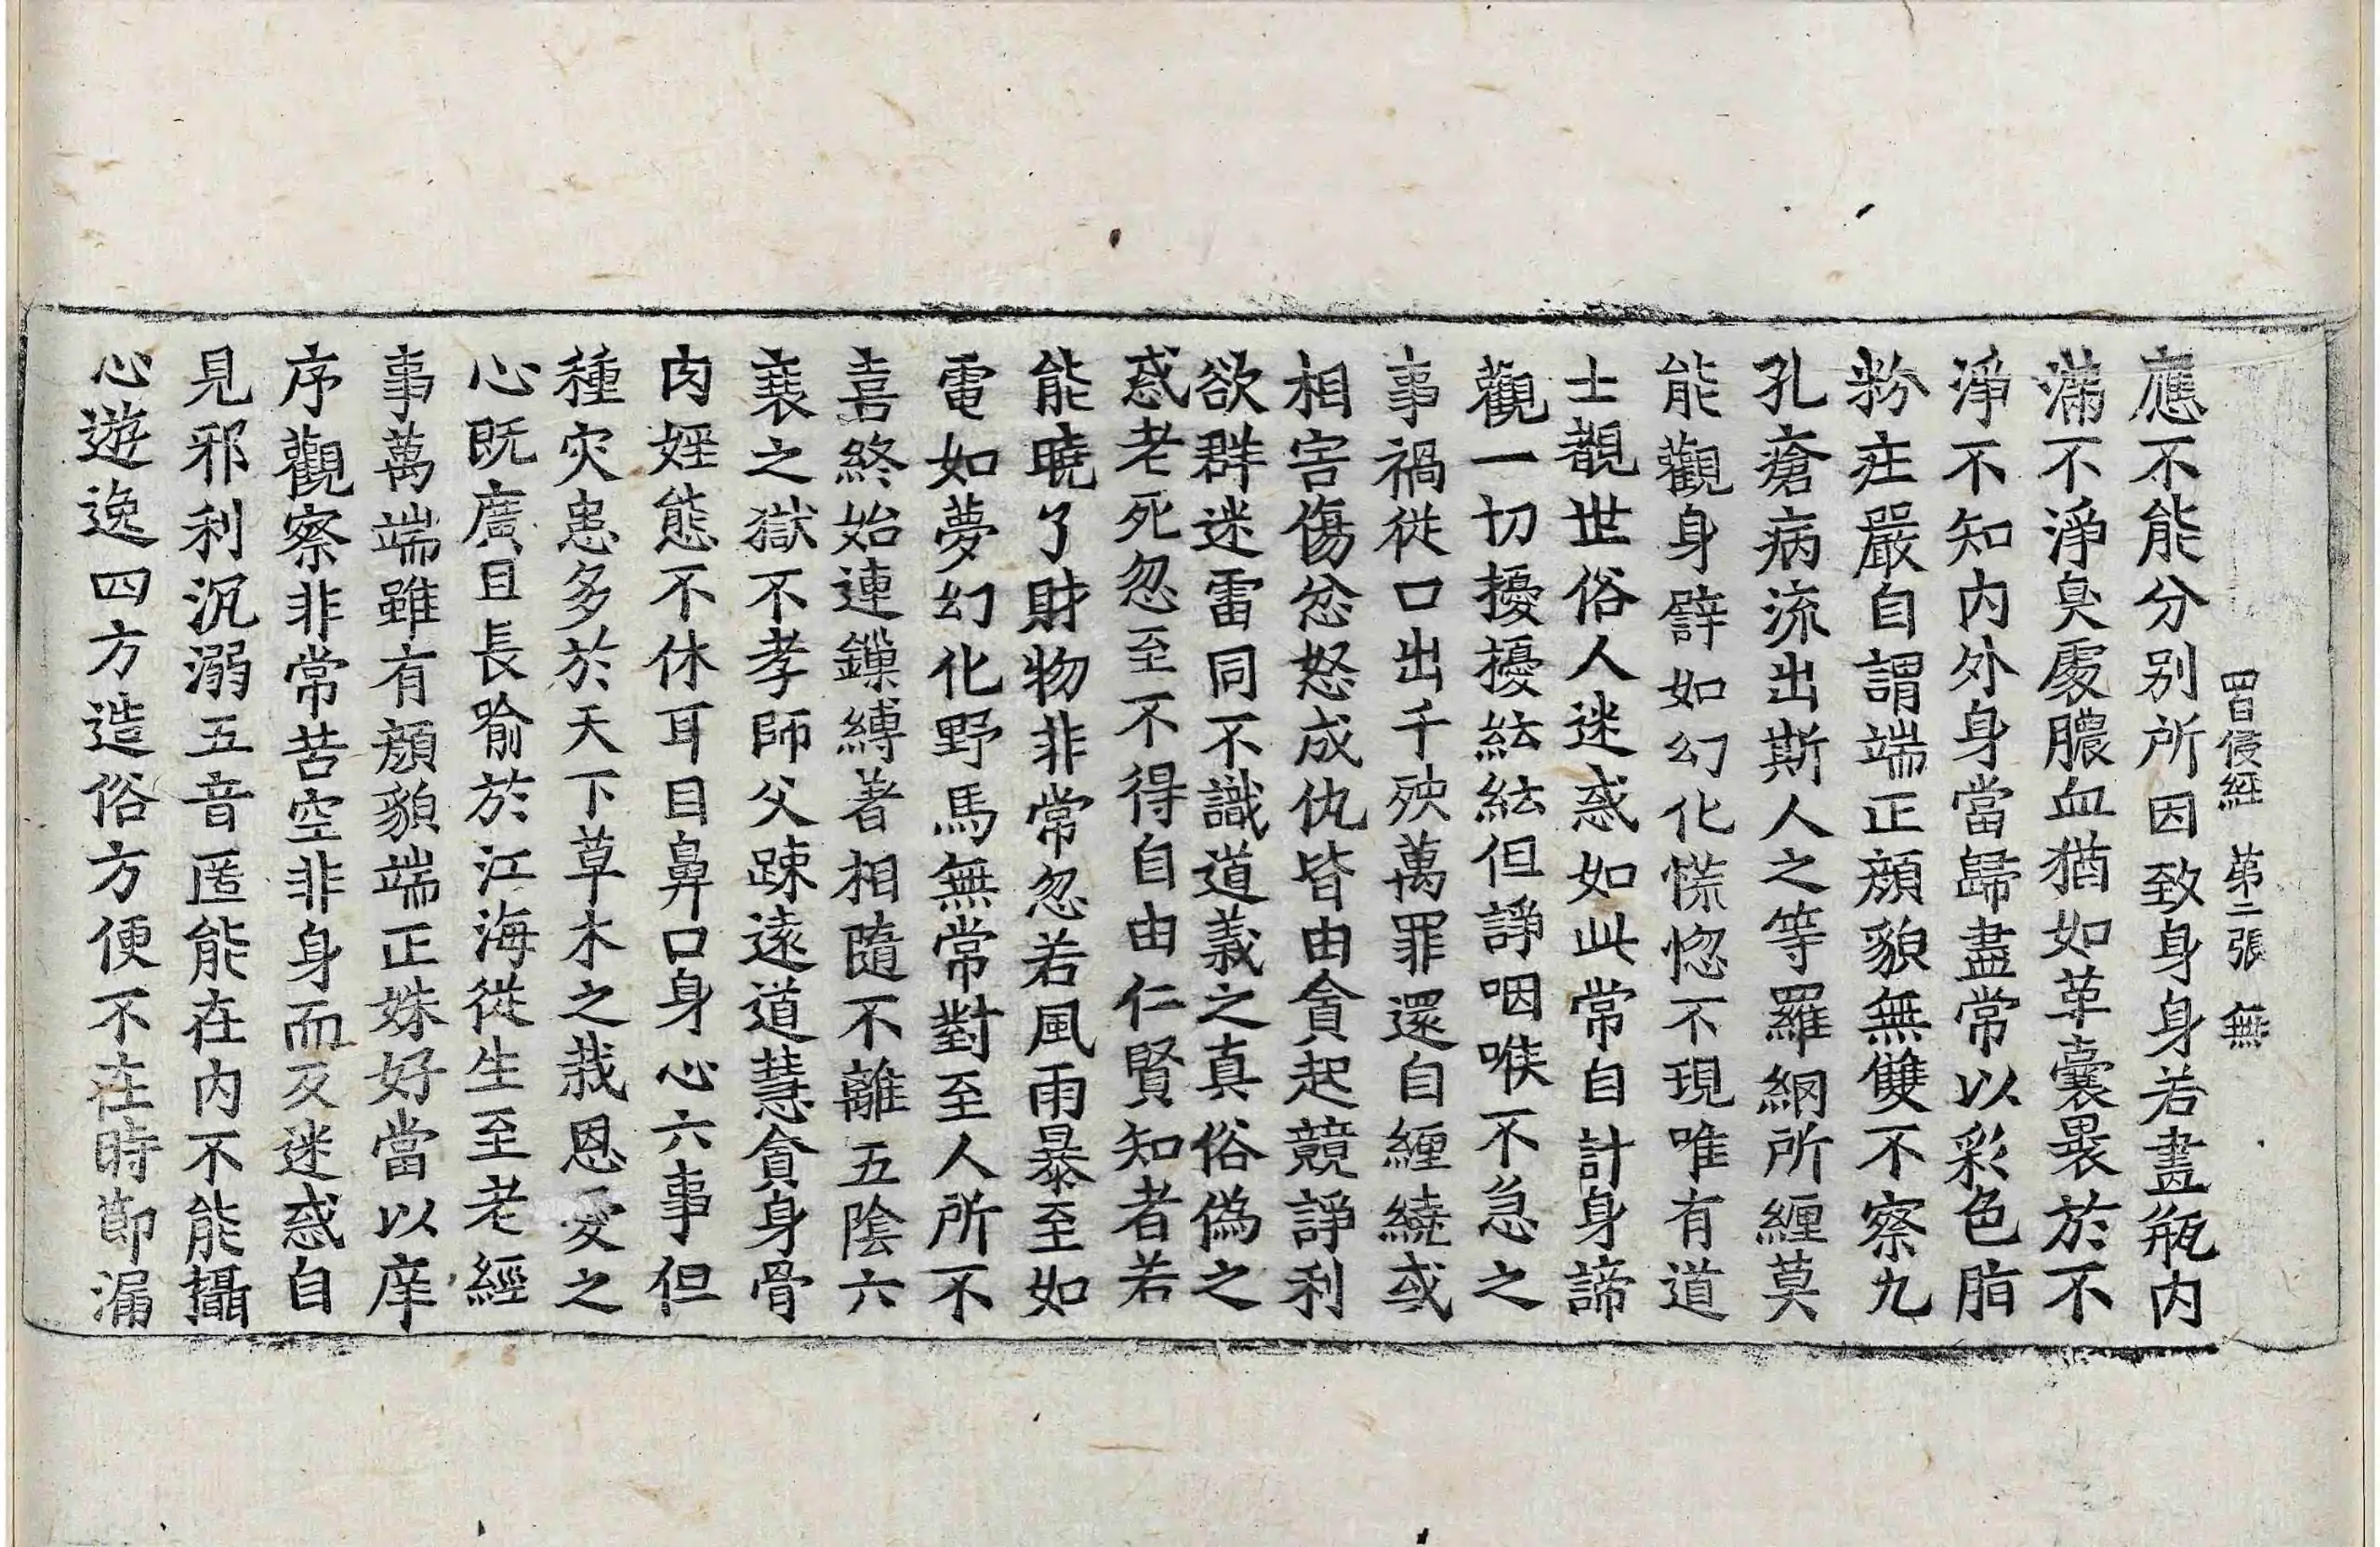 四自侵經 苐二張 無
應不能分別所因致身身若畫瓶内
滿不淨臭處膿血猶如革囊畏於不
淨不知内外身當歸盡常以彩色脂
粉疰嚴自謂端正顔貌無雙不察九
孔瘡病流出斯人之等羅網所纏莫
能觀身譬如幻化慌惚不現唯有道
士覩世俗人迷惑如此常自計身諦
觀一切擾擾紜紜但諍咽喉不急之
事禍從口出千殃萬罪還自纏繞或
相害傷忿怒成仇皆由貪起競諍利
欲群迷雷同不識道義之真俗偽之
惑老死忽至不得自由仁賢知者若
能曉了財物非常忽若風雨暴至如
電如夢幻化野馬無常對至人所不
喜終始連鏁縛著相隨不離五陰六
衰之獄不孝師父踈遠道慧貪身骨
肉婬態不休耳目鼻口身心六事但
種灾患多於天下草木之栽恩愛之
心既廣且長喻於江海從生至老經
事萬端雖有顔貌端正姝好當以庠
序觀察非常苦空非身而反迷惑自
見邪利沉溺五音匿能在内不能攝
心遊逸四方造俗方便不在時節漏